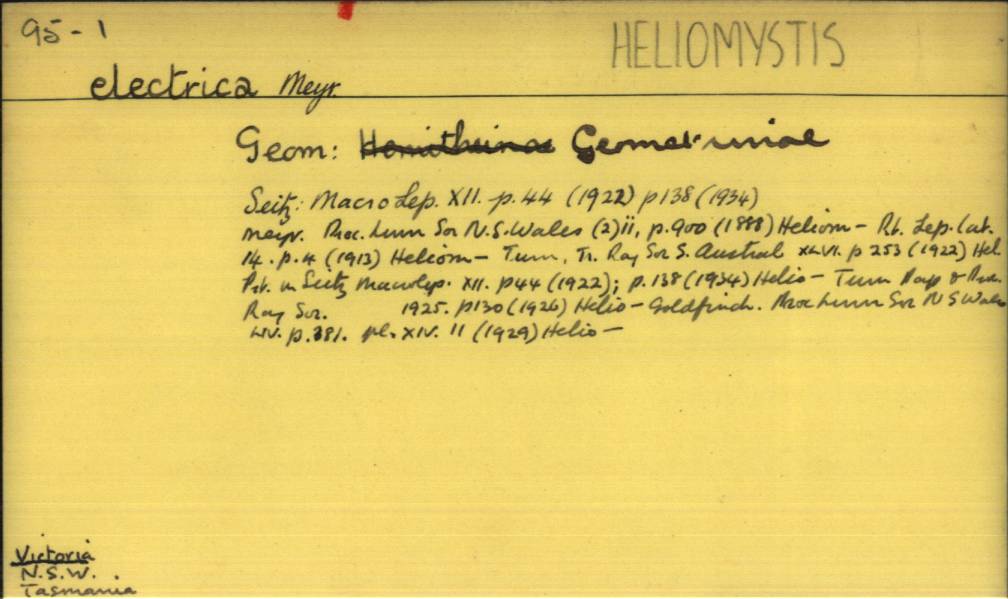 95-1
HELIOMYSTIS
electrica Meyr.
Geom: Hemitheinae Geometrinae
Seitz: MacroLep. XII. p.44 (1922) p138 (1934)
Meyr. Proc. Linn Soc N.S.Wales (2) ii, p.900 (1888) Heliom- Pt. Lep. Cat.
14. p.4 (1913) Heliom- Turn, Tr. Roy Soc S. Austral XLVI. p 253 (1922) Hel
Prt. in Seitz Macrolep. XII. p44 (1922); p.138 (1934) Helio- Turn Pap & Proc
Roy Soc. 1925. p130 (1926) Helio- Goldfinch. Proc Linn Soc N S Wales
LIV. p.381. pl. XIV. 11 (1929) Helio-
Victoria
N.S.W.
Tasmania